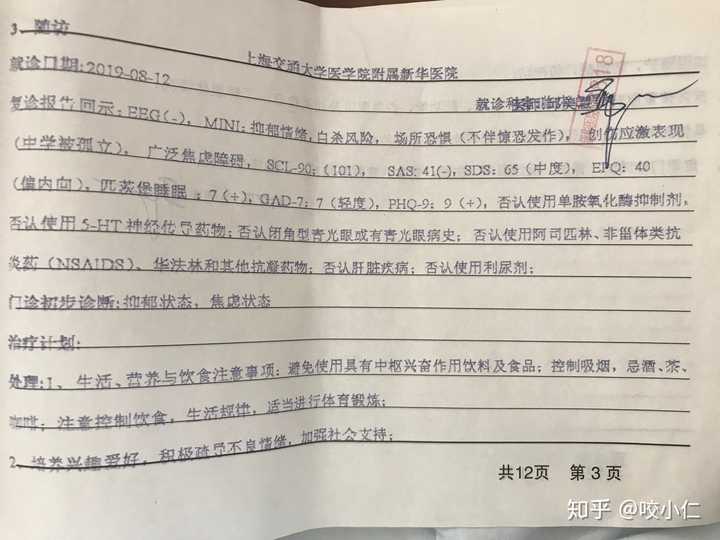 3、随访
上海交通大学医学院附属新华医院
就诊日期:2019-08-12
就诊科
18
复诊报告回示: EEG(-), MINI: 抑郁情绪,自杀风险, 场所恐惧(不伴惊恐发作), 创伤应激表现
(中学被孤立), 广泛焦虑障碍, SCL-90: (101), SAS: 41(-), SDS: 65(中度), EPQ: 40
(偏内向), 匹茨堡睡眠 : 7(+), GAD-7: 7(轻度), PHQ-9: 9(+), 否认使用单胺氧化酶抑制剂,
否认使用 5-HT 神经传导药物; 否认闭角型青光眼或有青光眼病史; 否认使用阿司匹林、非甾体类抗
炎药(NSAIDS)、华法林和其他抗凝药物; 否认肝脏疾病; 否认使用利尿剂;
门诊初步诊断:抑郁状态, 焦虑状态
治疗计划:
处理:1、生活、营养与饮食注意事项: 避免使用具有中枢兴奋作用饮料及食品; 控制吸烟, 忌酒、茶、
咖啡; 注意控制饮食, 生活规律, 适当进行体育锻炼;
2、培养兴趣爱好, 积极疏导不良情绪, 加强社会支持;
共12页 第 3 页
知乎 @咬小仁